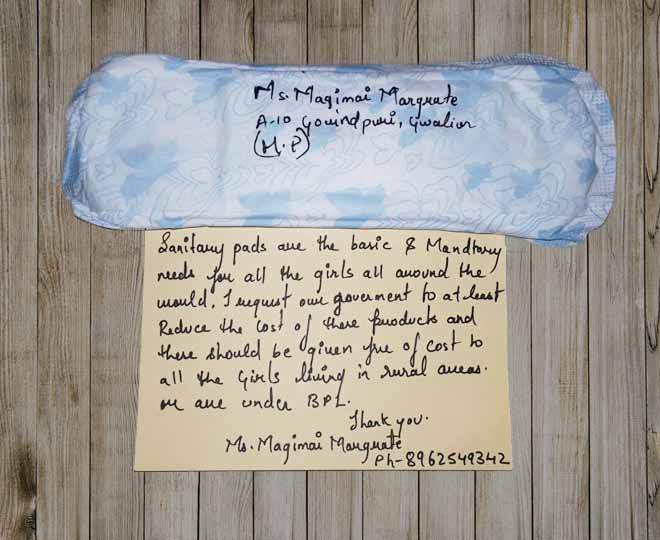 Ms. Magimai Marguate
A-10 Govindpuri, Gwalior
(M.P)
Sanitary pads are the basic & Mandtory
needs for all the girls all around the
would. I request our goverment to at least
Reduce the cost of these products and
there should be given free of cost to
all the Girls living in rural areas.
or are under BPL.
Thank you.
Ms. Magimai Marguate
Ph-8962549342